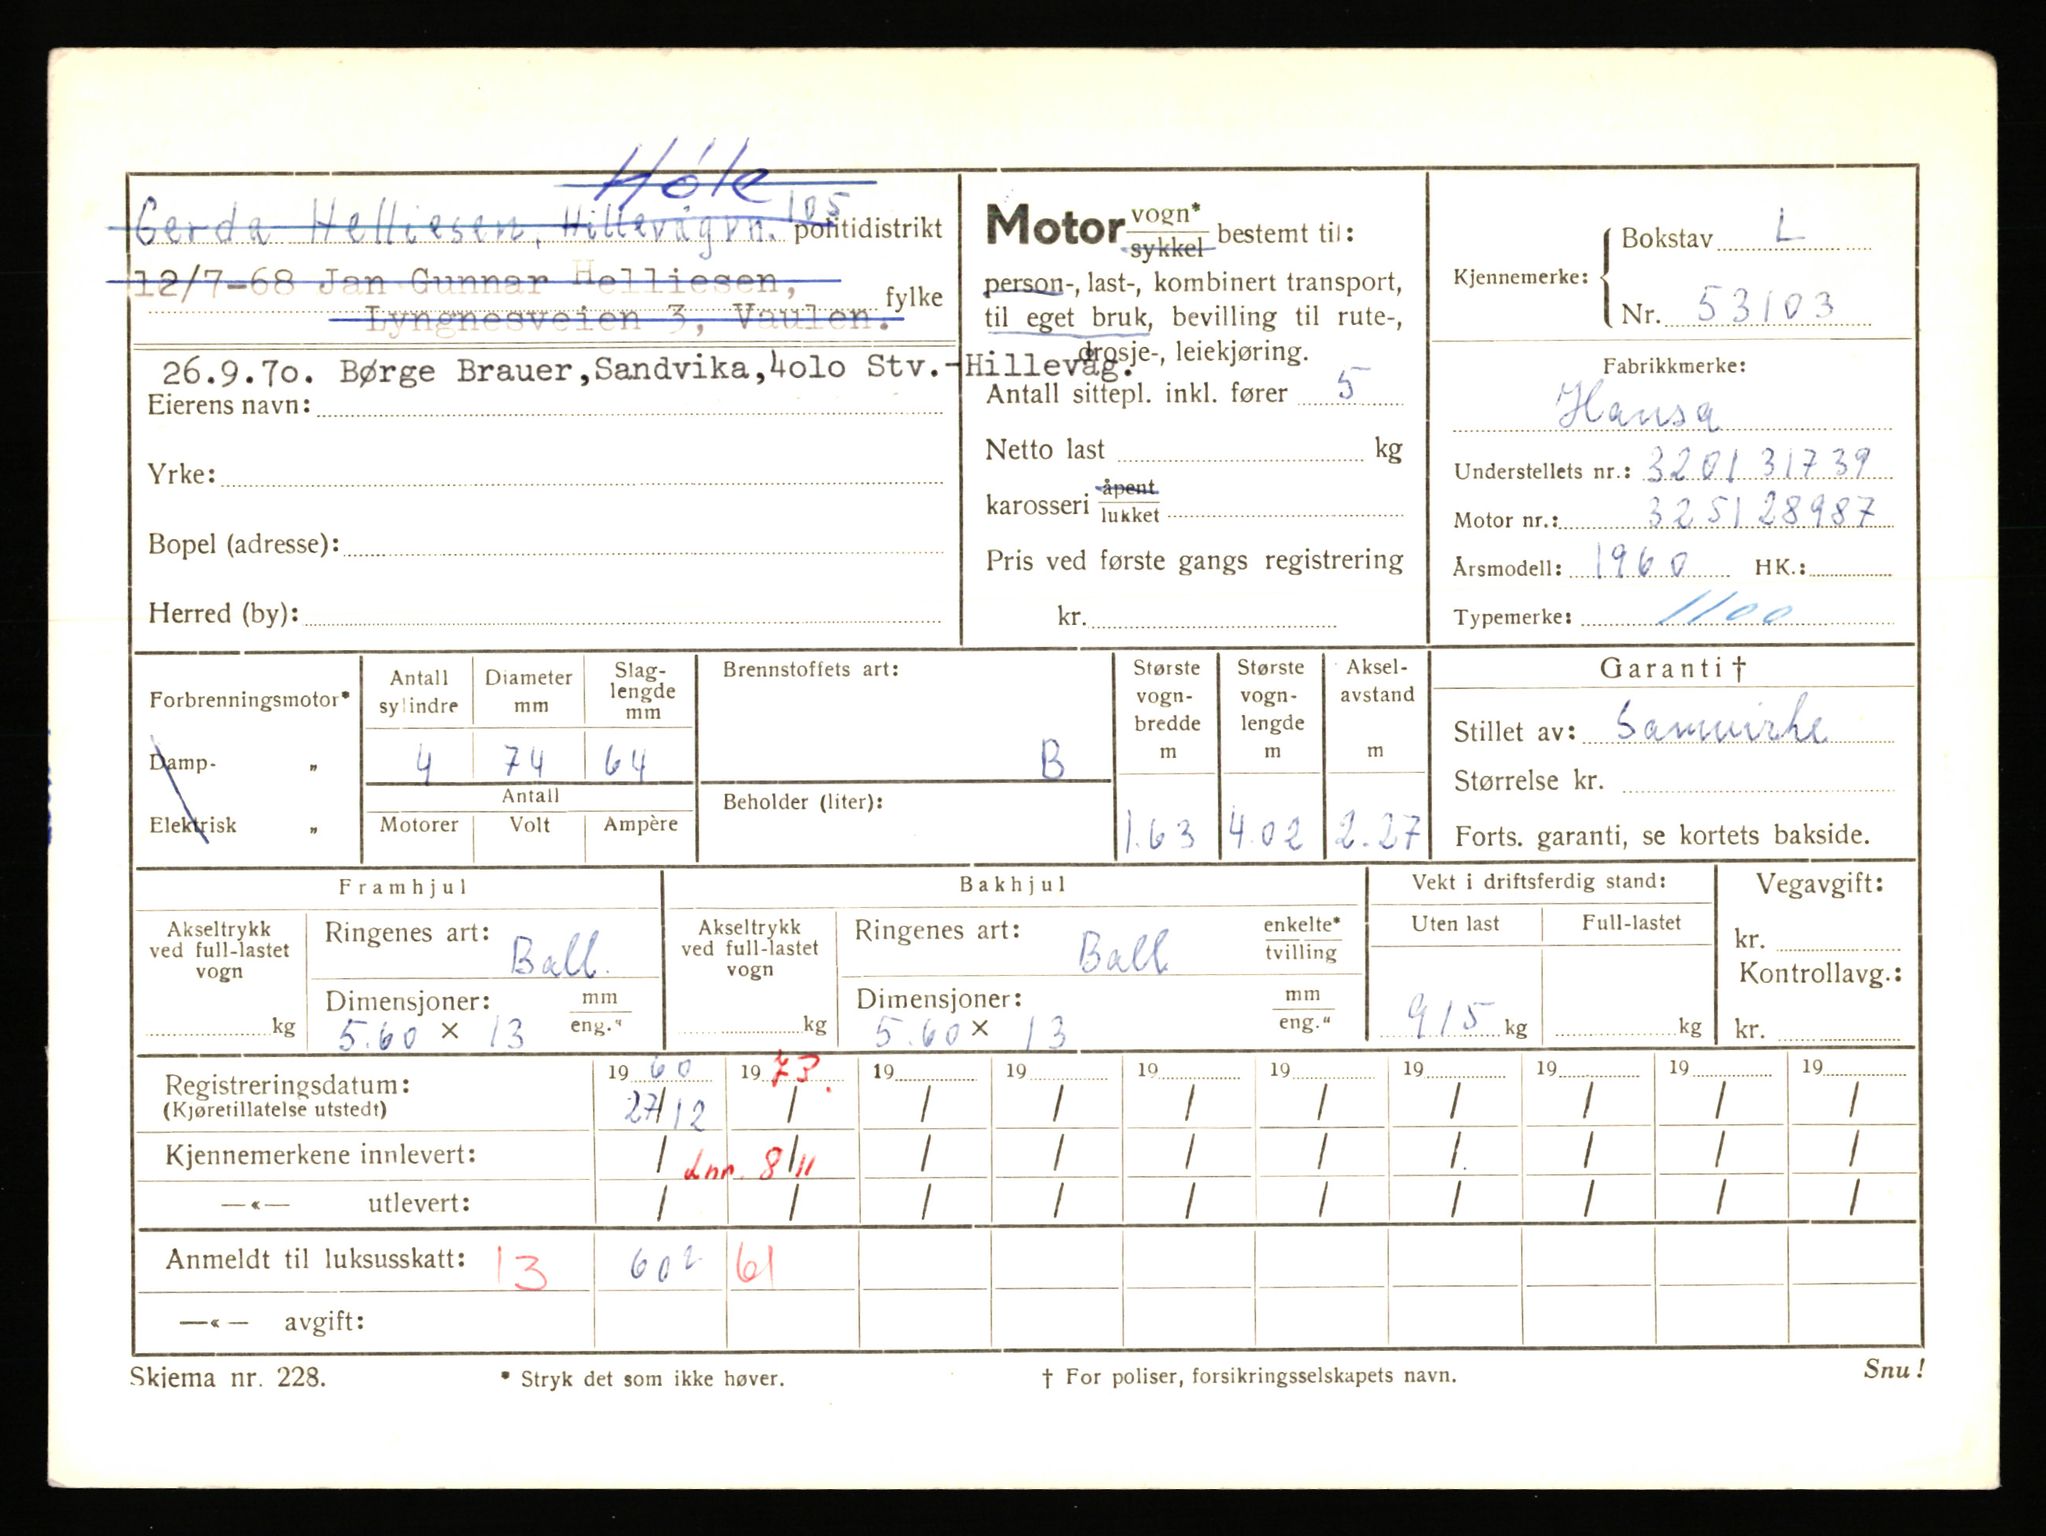 Høle
Gerda Helliesen, Hillevågvn. 105 politidistrikt
12/7-68 Jan Gunnar Helliesen,
fylke
Lyngnesveien 3, Vaulen.
26.9.7o. Børge Brauer,Sandvika,4olo Stv.-Hillevåg.
Eierens navn:
Yrke:
Bopel (adresse):
Herred (by):
Motor vogn* sykkel bestemt til:
person-, last-, kombinert transport,
til eget bruk, bevilling til rute-,
drosje-, leiekjøring.
Antall sittepl. inkl. fører 5
Netto last kg
karosseri åpent lukket
Pris ved første gangs registrering
kr.
Kjennemerke: Bokstav L
Nr. 53103
Fabrikkmerke:
Hansa
Understellets nr.: 320131739
Motor nr.: 325128987
Årsmodell: 1960 HK.:
Typemerke: 1100
Forbrenningsmotor*
Damp- „
Elektrisk „
Antall sylindre Diameter mm Slag-lengde mm
4 74 64
Antall
Motorer Volt Ampère
Brennstoffets art:
B
Beholder (liter):
Største vogn-bredde m Største vogn-lengde m Aksel-avstand m
1.63 4.02 2.27
Garanti †
Stillet av: Samvirke
Størrelse kr.
Forts. garanti, se kortets bakside.
Framhjul
Akseltrykk ved full-lastet vogn
kg
Ringenes art: Ball.
Dimensjoner: mm eng."
5.60 × 13
Bakhjul
Akseltrykk ved full-lastet vogn
kg
Ringenes art: Ball enkelte* tvilling
Dimensjoner: mm eng."
5.60 × 13
Vekt i driftsferdig stand:
Uten last Full-lastet
915 kg kg
Vegavgift:
kr.
Kontrollavg.:
kr.
Registreringsdatum: 19 60 19 73. 19 19 19 19 19 19 19 19
(Kjøretillatelse utstedt) 27/12 / / / / / / / / /
Kjennemerkene innlevert: / Lnr. 8/11 / / / / / / / /
—«— utlevert: / / / / / / / / / /
Anmeldt til luksusskatt: 13 602 61
—«— avgift:
Skjema nr. 228. * Stryk det som ikke høver. † For poliser, forsikringsselskapets navn. Snu!